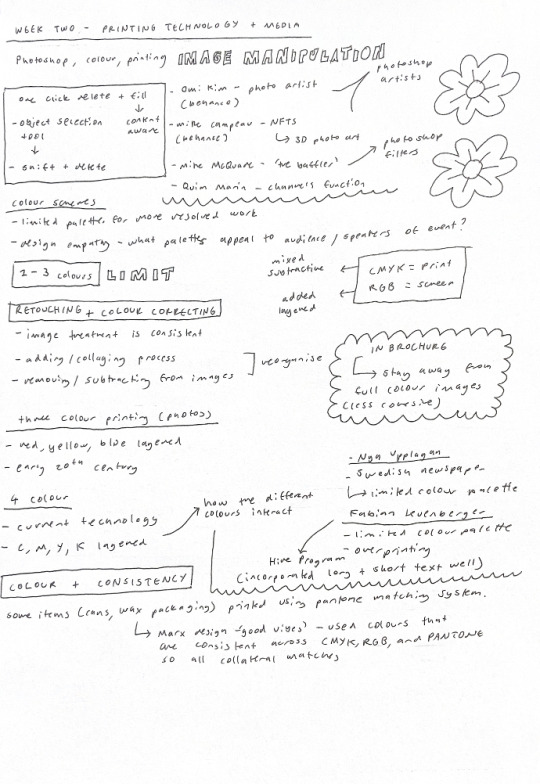 WEEK TWO - PRINTING TECHNOLOGY + MEDIA
Photoshop, colour, printing IMAGE MANIPULATION
photoshop artists
one click delete + fill
content aware
- object selection tool
- shift + delete
- Omi Kim - photo artist
(behance)
- mike campau - NFTS
(behance)
3D photo art
- Mike McQuade - 'the baffler'
photoshop filters
- Quim Marin - channels function
colour schemes
- limited palettes for more resolved work
- design empathy - what palettes appeal to audience / speakers of event?
2-3 colours LIMIT
mixed subtractive
CMYK = print
added layered
RGB = screen
RETOUCHING + COLOUR CORRECTING
- image treatment is consistent
- adding / collaging process
- removing / subtracting from images
reorganise
IN BROCHURE
stay away from
full colour images
(less cohesive)
three colour printing (photos)
- red, yellow, blue layered
- early 20th century
4 colour
- current technology
- C, M, Y, K layered
how the different
colours interact
- Nya Upplagan
- Swedish newspaper
limited colour palette
Fabian
- limited colour palette
- overprinting
Hive Program
(incorporated long + short text well)
COLOUR + CONSISTENCY
some items (cans, wax packaging) printed using pantone matching system.
Marx design 'good vibes' - used colours that
are consistent across CMYK, RGB, and PANTONE
so all collateral matches